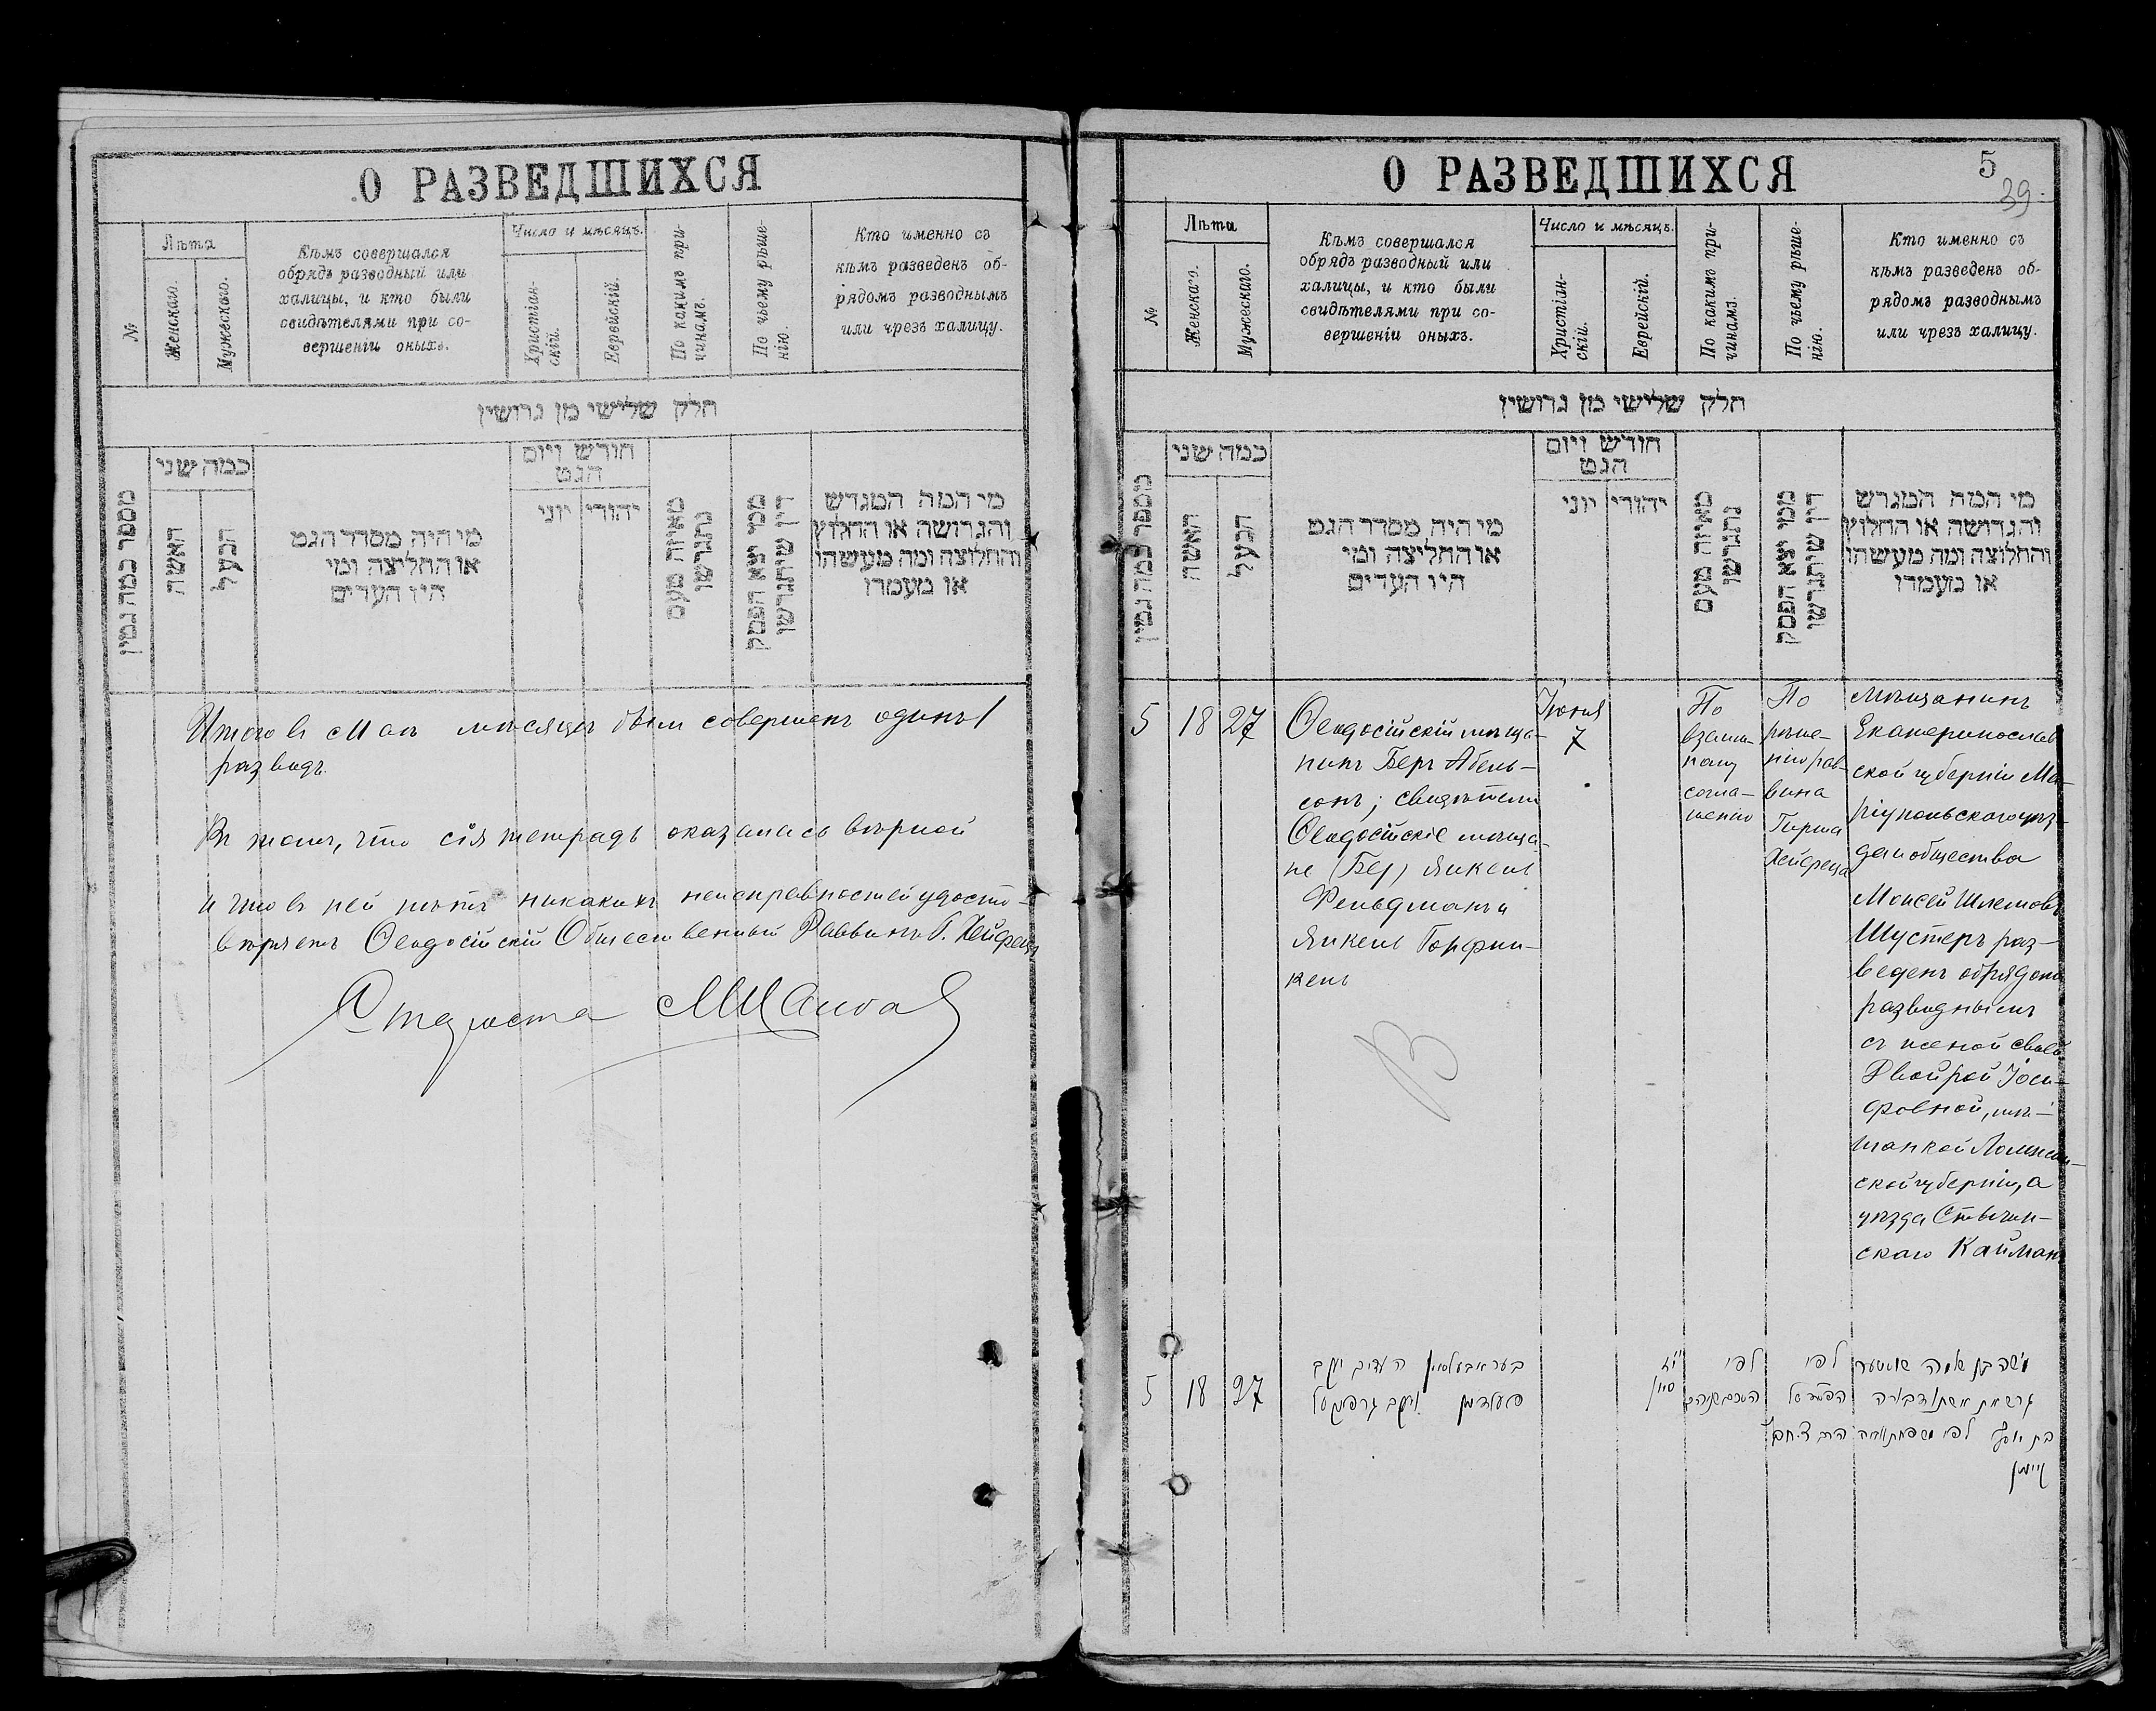 О РАЗВЕДШИХСЯ
№
Лѣта
Женскаго.
Мужескаго.
Кѣмъ совершался
обрядъ разводный или
халицы, и кто были
свидѣтелями при со-
вершеніи оныхъ.
Число и мѣсяцъ.
Христіан-
скій.
Еврейскій.
По какимъ при-
чинамъ.
По чьему рѣше-
нію.
Кто именно съ
кѣмъ разведенъ об-
рядомъ разводнымъ
или чрезъ халицу.
חלק שלישי מן גרושין
מספר כמה גטין
כמה שני
האשה
הבעל
מי היה מסדר הגט
או החליצה ומי
היו העדים
חודש ויום
הגט
יהודי
יוני
מאיזה טעם
נתגרשו
ממי יצא הפסק
דין שיתגרשו
מי המה המגרש
והגרושה או החלוץ
והחלוצה ומה מעשהו
או מעמדו
Итого въ Маѣ мѣсяцѣ былъ совершенъ одинъ 1
разводъ.
Въ томъ, что сія тетрадь оказалась вѣрной
и что въ ней нѣтъ никакихъ неисправностей удосто-
вѣряетъ Ѳеодосійскій Общественный Раввинъ Г. Хейфецъ
Староста
О РАЗВЕДШИХСЯ
5
39.
№
Лѣта
Женскаго.
Мужескаго.
Кѣмъ совершался
обрядъ разводный или
халицы, и кто были
свидѣтелями при со-
вершеніи оныхъ.
Число и мѣсяцъ.
Христіан-
скій.
Еврейскій.
По какимъ при-
чинамъ.
По чьему рѣше-
нію.
Кто именно съ
кѣмъ разведенъ об-
рядомъ разводнымъ
или чрезъ халицу.
חלק שלישי מן גרושין
מספר כמה גטין
כמה שני
האשה
הבעל
מי היה מסדר הגט
או החליצה ומי
היו העדים
חודש ויום
הגט
יהודי
יוני
מאיזה טעם
נתגרשו
ממי יצא הפסק
דין שיתגרשו
מי המה המגרש
והגרושה או החלוץ
והחלוצה ומה מעשהו
או מעמדו
5
18
27
Ѳеодосійскій мѣща-
нинъ Беръ Абель-
сонъ; свидѣтели
Ѳеодосійскіе мѣща-
не (Бер) Янкель
Фельдманъ и
Янкель Горфин-
кель
Іюня
7
По
взаим-
ному
согла-
шенію
По
рѣше-
нію рав-
вина
Гирша
Хейфеца
Мѣщанинъ
Екатеринослав
ской губерніи Ма-
ріупольскаго уѣз-
да и общества
Моисей Шлемовъ
Шустеръ раз-
веденъ обрядомъ
разводнымъ
съ женой своей
Двойрой Іоси-
фовной, мѣ-
щанкой Ломжин-
ской губерніи, а
уѣзда
скаго Кайманъ
5
18
27
בער אבעלסאן העדים יעקב
פעלדמן ויעקב גרפינקעל
סיון
לפי
לפי
משה בן שלמה שוסטער
גרש את אשתו דבורה
בת יוסף לפי משפחתה